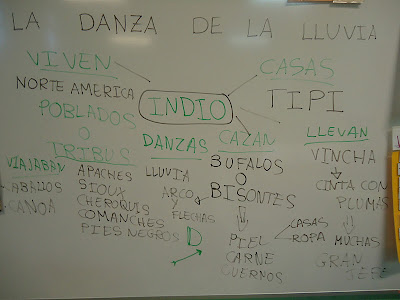 LA DANZA DE LA LLUVIA
VIVEN
NORTE AMERICA
POBLADOS
O
TRIBUS
INDIO
CASAS
TIPI
VIAJABAN
CABALLOS
CANOA
APACHES
SIOUX
CHEROQUIS
COMANCHES
PIES NEGROS
DANZAS
LLUVIA
CAZAN
BUFALOS
O
BISONTES
ARCO
Y
FLECHAS
D
PIEL
CARNE
CUERNOS
CASAS
ROPA
LLEVAN
VINCHA
CINTA CON
PLUMAS
MUCHAS
GRAN
JEFE